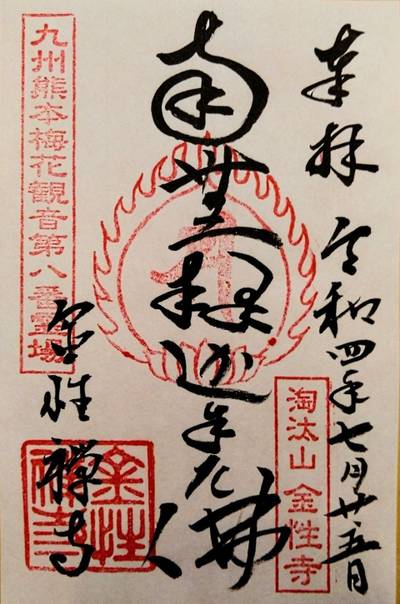 奉拝
令和四年七月廿五日
南無釋迦牟尼佛
淘汰山 金性寺
九州熊本梅花観音第八番霊場
金性禅寺
金性禅寺